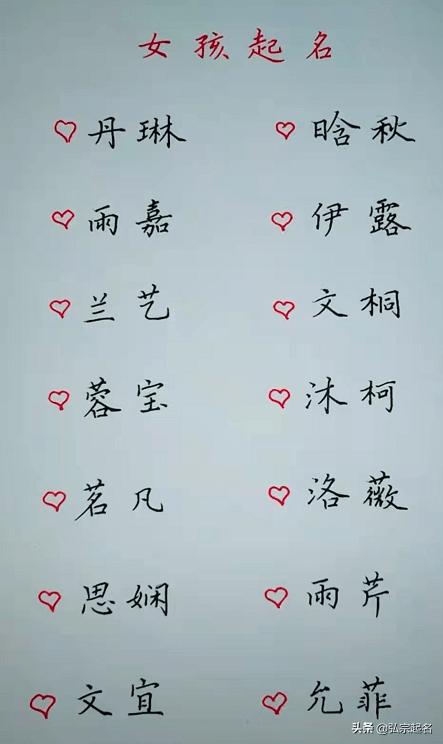 女孩起名
♡丹琳 ♡晗秋
♡雨嘉 ♡伊露
♡兰艺 ♡文桐
♡蓉宝 ♡沐柯
♡茗凡 ♡洛薇
♡思娴 ♡雨芹
♡文宜 ♡允菲
头条 @弘宗起名